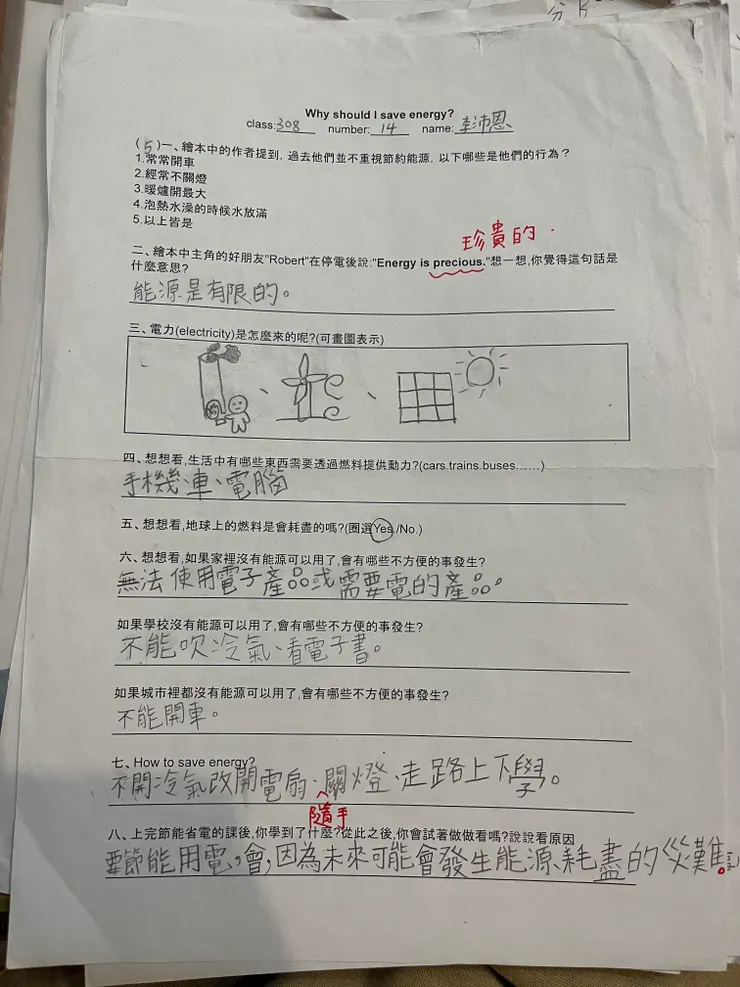 Why should I save energy?
class:308 number: 14 name: 李沛恩
(5)一、繪本中的作者提到, 過去他們並不重視節約能源, 以下哪些是他們的行為?
1.常常開車
2.經常不關燈
3.暖爐開最大
4.泡熱水澡的時候水放滿
5.以上皆是
珍貴的.
二、繪本中主角的好朋友"Robert"在停電後說:"Energy is precious."想一想,你覺得這句話是
什麼意思?
能源是有限的。
三、電力(electricity)是怎麼來的呢?(可畫圖表示)
、 、
四、想想看,生活中有哪些東西需要透過燃料提供動力?(cars.trains.buses……)
手機、車、電腦
五、想想看,地球上的燃料是會耗盡的嗎?(圈選Yes./No.)
六、想想看,如果家裡沒有能源可以用了,會有哪些不方便的事發生?
無法使用電子產品或需要電的產品。
如果學校沒有能源可以用了,會有哪些不方便的事發生?
不能吹冷氣、看電子書。
如果城市裡都沒有能源可以用了,會有哪些不方便的事發生?
不能開車。
七、How to save energy?
不開冷氣改開電扇、關燈、走路上下學。
隨手
八、上完節能省電的課後,你學到了什麼?從此之後,你會試著做做看嗎?說說看原因
要節能用電,會,因為未來可能會發生能源耗盡的災難。